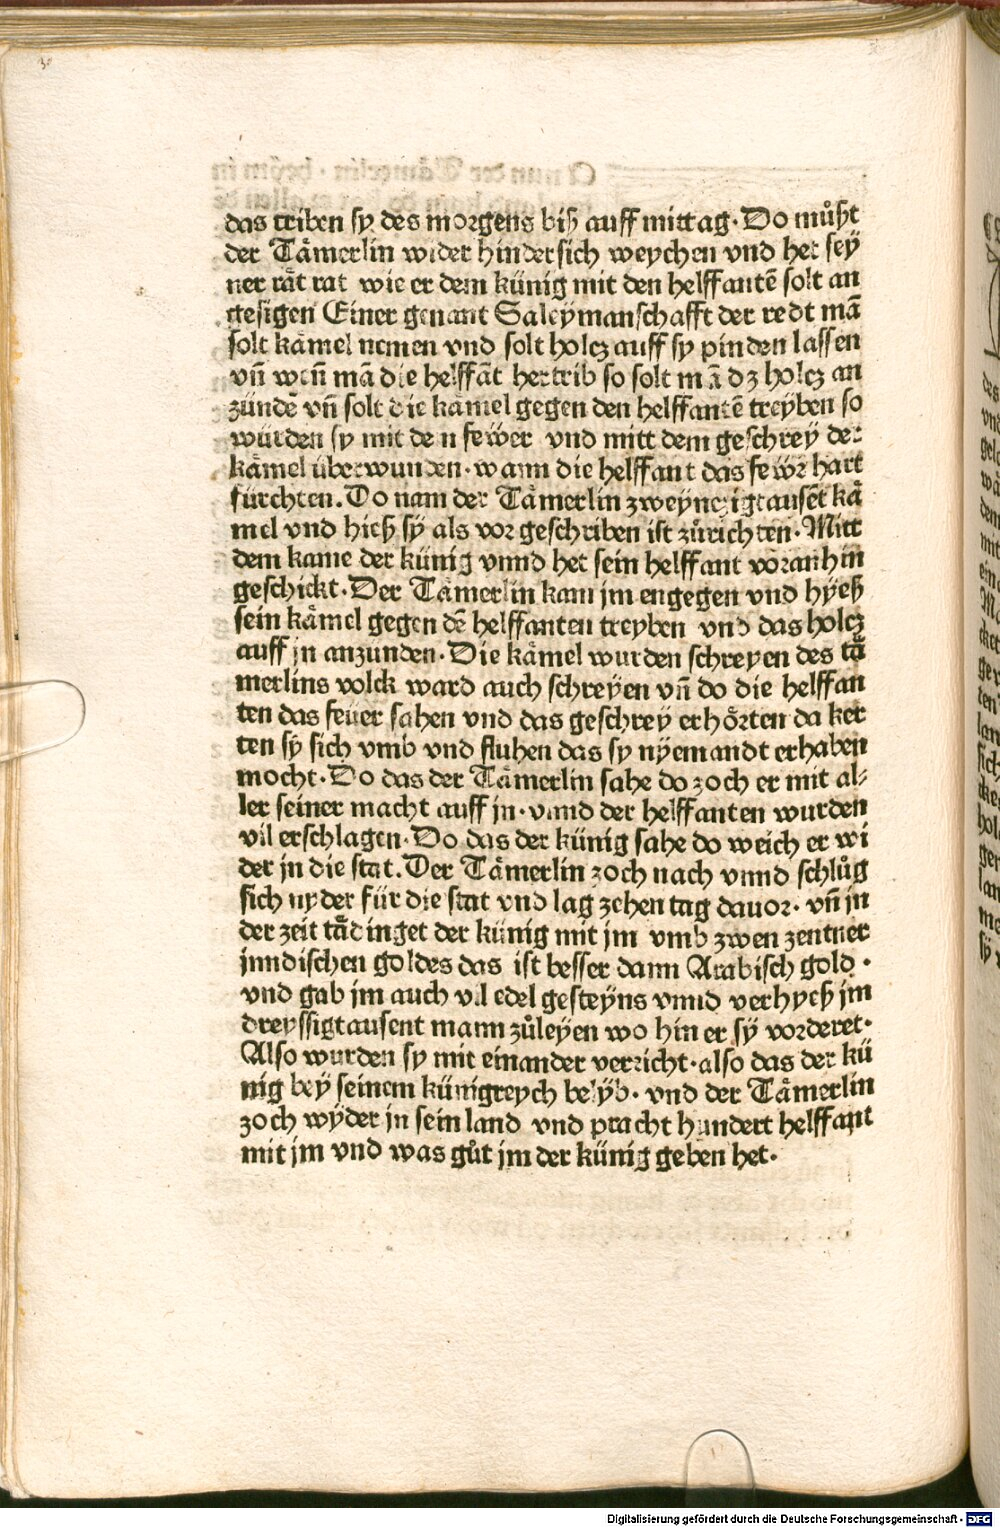 30
das triben sy des morgens biß auff mittag. Do můßt
der Tämerlin wider hindersich weychen vnd het sey
ner rät rat wie er dem künig mit den helffantē solt an
gesigen Einer genant Saleymanschafft der redt mā
solt kämel nemen vnd solt holcz auff sy pinden lassen
vn̄ wen̄ mā die helffāt hertrib so solt mā dz holcz an
zündē vn̄ solt die kämel gegen den helffantē treyben so
würden sy mit dem fewer vnd mitt dem geschrey der
kämel überwunden. wann die helffant das fewr hart
fürchten. Do nam der Tämerlin zweynczigtausēt kä
mel vnd hieß sy als vor geschriben ist zůrichten. Mitt
dem kame der künig vnnd het sein helffant voranhin
geschickt. Der Tämerlin kam jm engegen vnd hyeß
sein kämel gegen dē helffanten treyben vnd das holcz
auff jn anzunden. Die kämel wurden schreyen des tä
merlins volck ward auch schreyen vn̄ do die helffan
ten das feüer sahen vnd das geschrey erhörten da ker
ten sy sich vmb vnd fluhen das sy nyemandt erhaben
mocht. Do das der Tämerlin sahe do zoch er mit al⸗
ler seiner macht auff jn. vnnd der helffanten wurden
vil erschlagen. Do das der künig sahe do weich er wi
der jn die stat. Der Tämerlin zoch nach vnnd schlůg
sich nyder für die stat vnd lag zehen tag dauor. vn̄ jn
der zeit tädinget der künig mit jm vmb zwen zentner
jnndischen goldes das ist besser dann Arabisch gold.
vnd gab jm auch vil edel gesteyns vnnd verhyeß jm
dreyssigtausent mann zůleyen wo hin er sy vorderet.
Also wurden sy mit einander verricht. also das der kü
nig bey seinem künigreych belyb. vnd der Tämerlin
zoch wyder jn sein land vnd pracht hundert helffant
mit jm vnd was gůt jm der künig geben het.
Digitalisierung gefördert durch die Deutsche Forschungsgemeinschaft - DFG